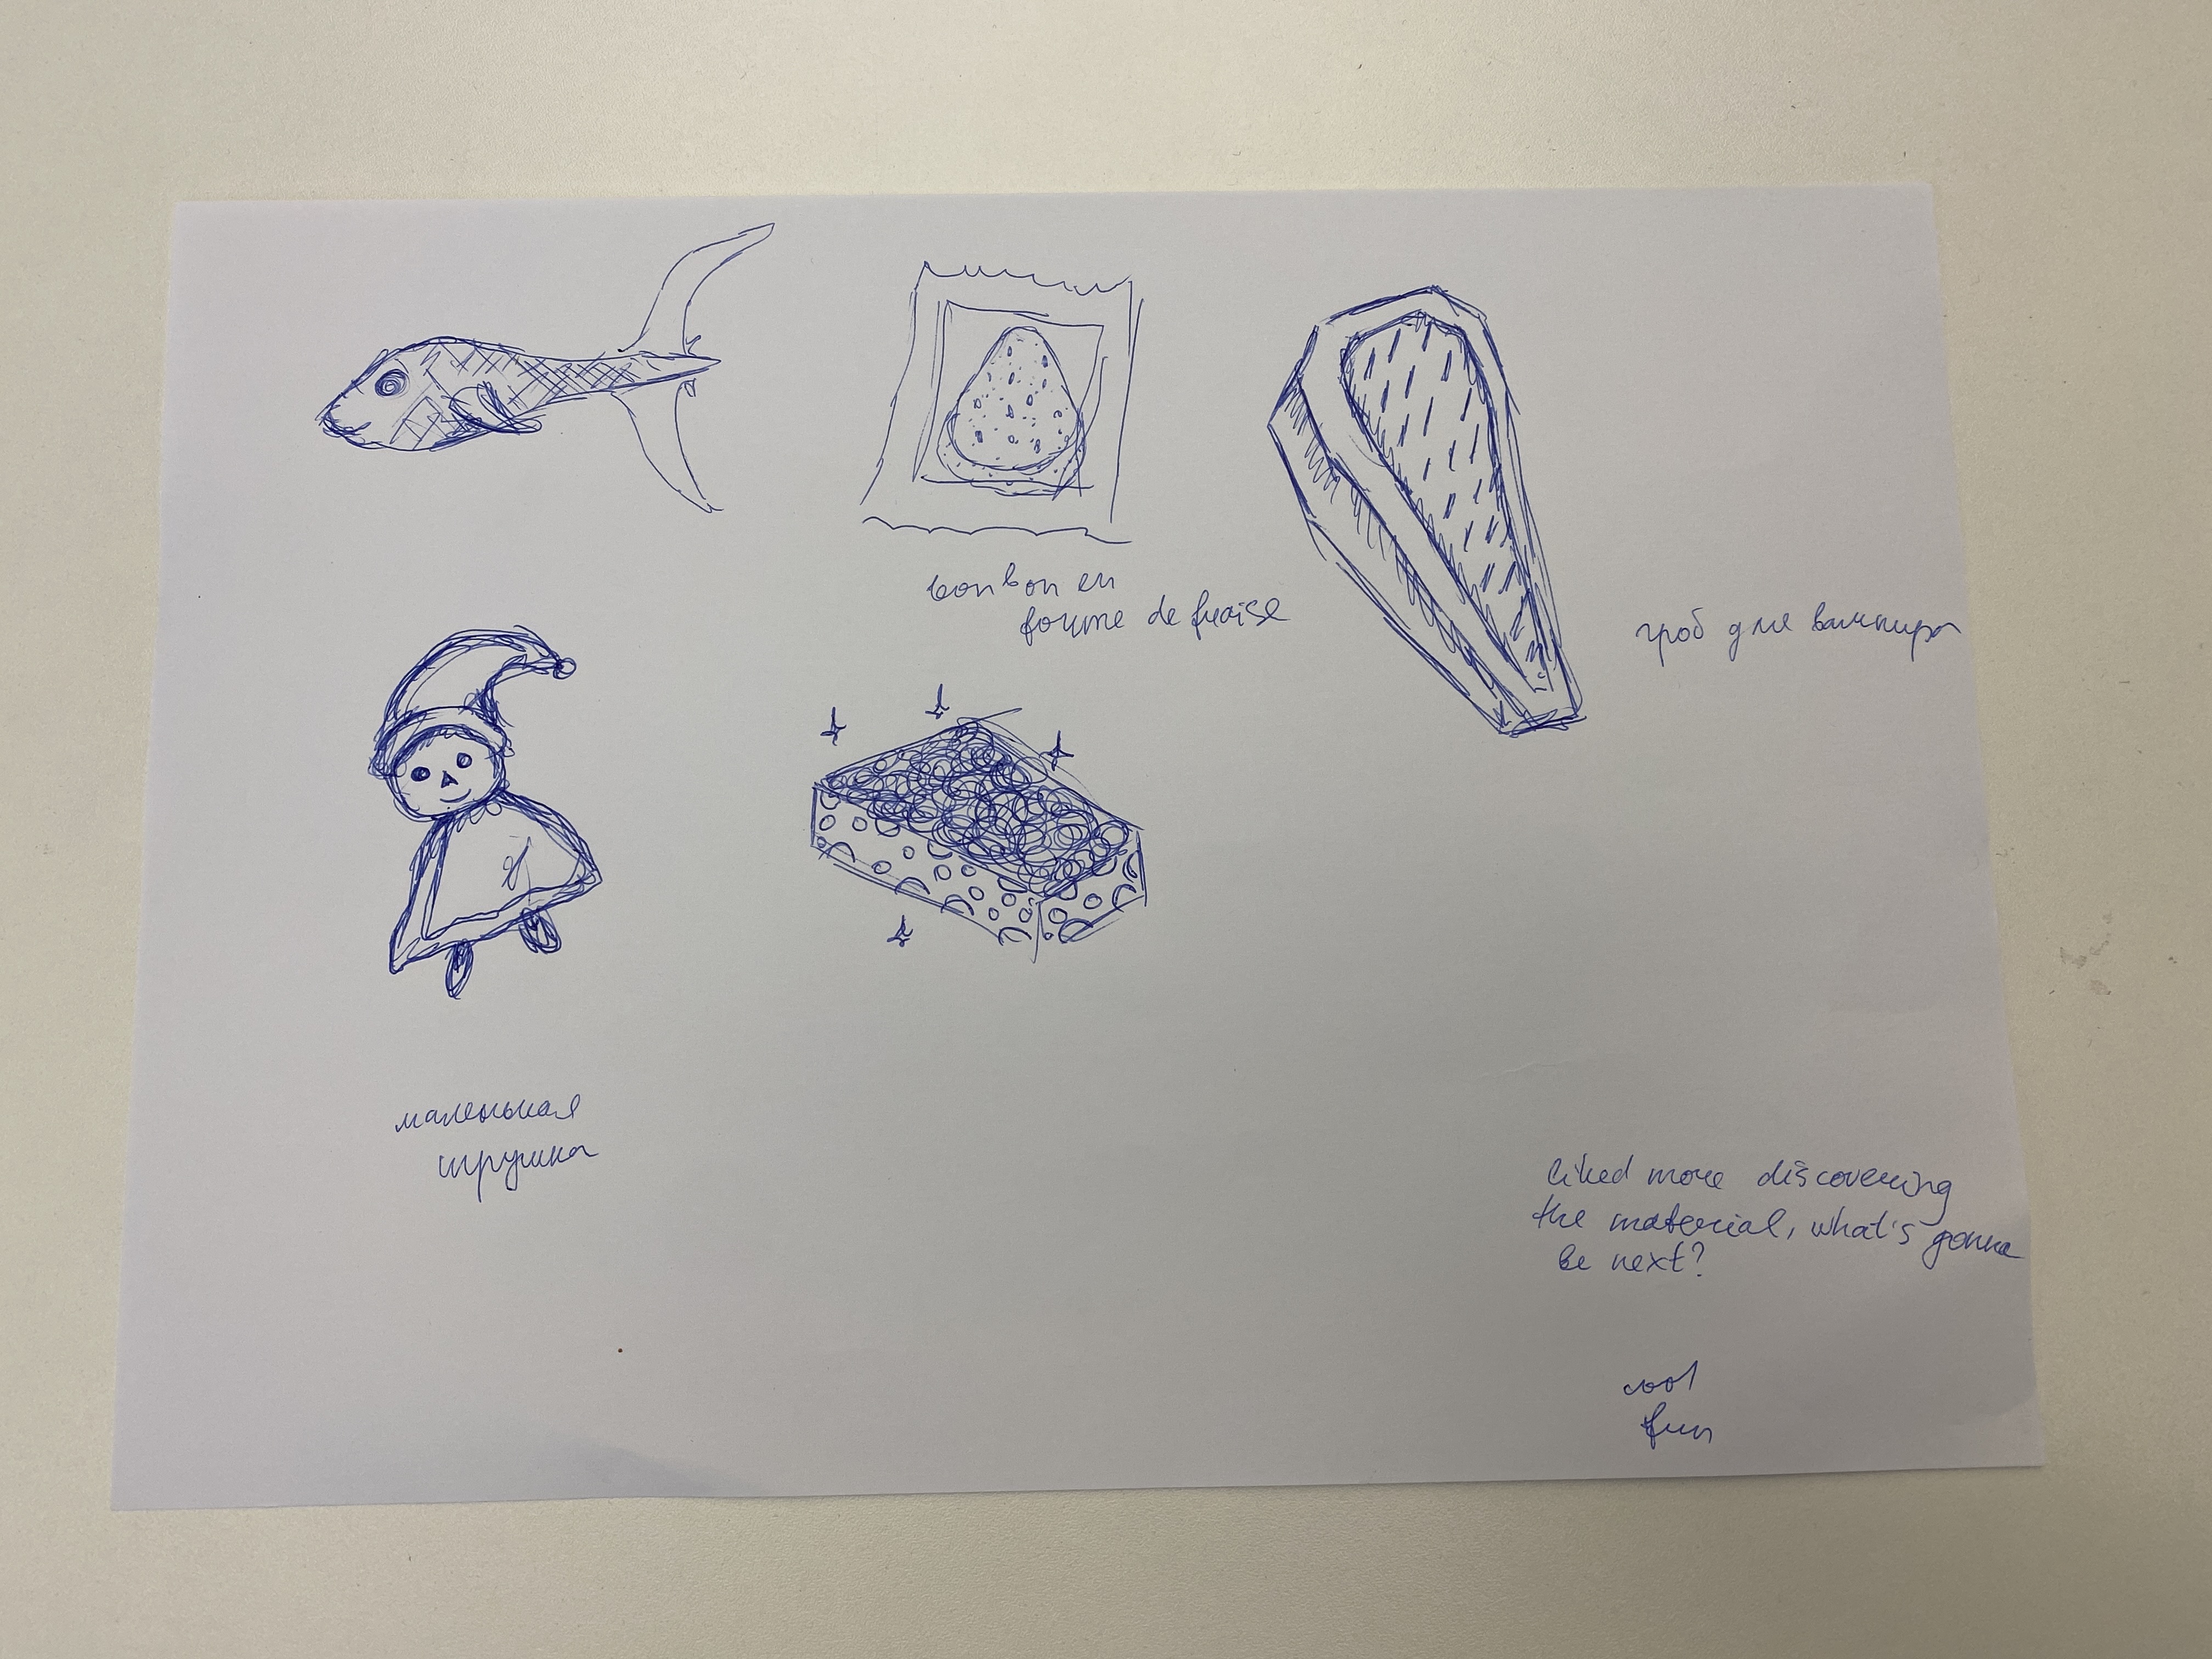 bonbon en
forme de fraise
гроб для вампира
маленькая
игрушка
liked more discovering
the material, what's gonna
be next?
cool
fun